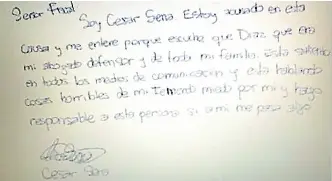 Señor Fiscal
Soy Cesar Sena Estoy acusado en esta
causa y me entere porque escuche que Diaz que era
mi abogado defensor y de toda mi familia. Esta saliendo
en todos los medios de comunicacion y esta hablando
cosas horribles de mi Teniendo miedo por mi y hago
responsable a esta persona si a mi me pasa algo
Cesar Sena